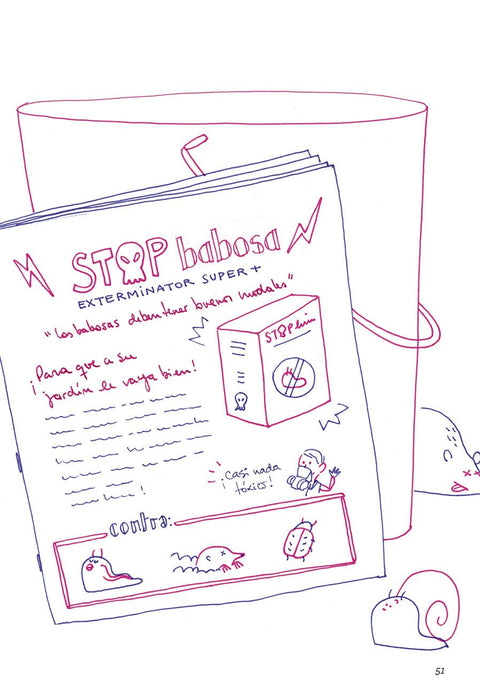 STOP babosa
EXTERMINATOR SUPER +
"Las babosas deben tener buenos modales"
¡Para que a su
jardín le vaya bien!
STOP
¡Casi nada
tóxico!
contra:
51